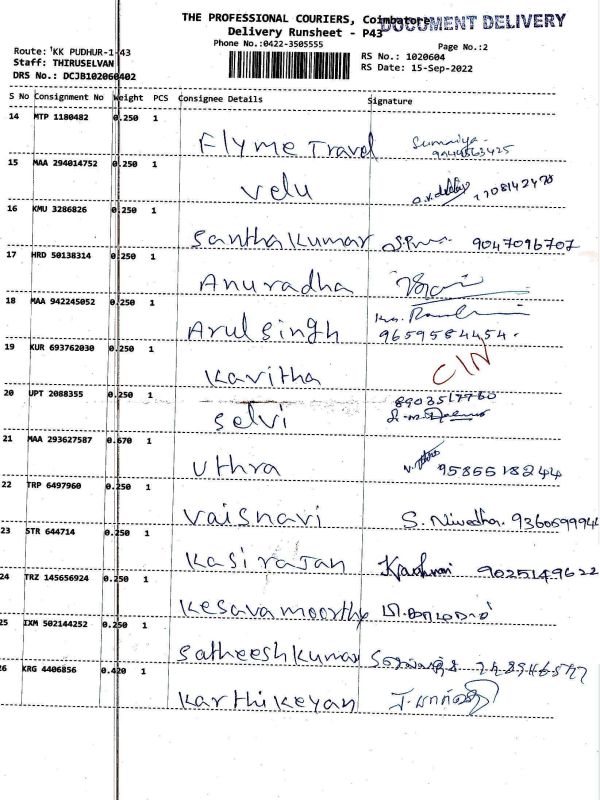 THE PROFESSIONAL COURIERS, Coimbatore
DOCUMENT DELIVERY
Delivery Runsheet - P43
Phone No.:0422-3505555
Page No.:2
Route: KK PUDHUR-1-43
RS No.: 1020604
Staff: THIRUSELVAN
RS Date: 15-Sep-2022
DRS No.: DCJB102060402
S No Consignment No Weight PCS Consignee Details Signature
14 MTP 1180482 0.250 1
Flyme Travel Sumaiya
15 MAA 294014752 0.250 1
Velu
16 KMU 3286826 0.250 1
Santhakumar 9047096707
17 HRD 50138314 0.250 1
Anuradha
18 MAA 942245052 0.250 1
Arulsingh 9659584454
19 KUR 693762030 0.250 1
Kavitha C/N
20 UPT 2088355 0.250 1
8903517760
Selvi
21 MAA 293627587 0.670 1
Uthra 9585518244
22 TRP 6497960 0.250 1
Vaisnavi S. Nivedha. 9360699944
23 STR 644714 0.250 1
Kasirajan 9025149622
24 TRZ 145656924 0.250 1
Kesavamoorthy
25 IXM 502144252 0.250 1
Satheeshkumar
26 KRG 4406856 0.420 1
Karthikeyan